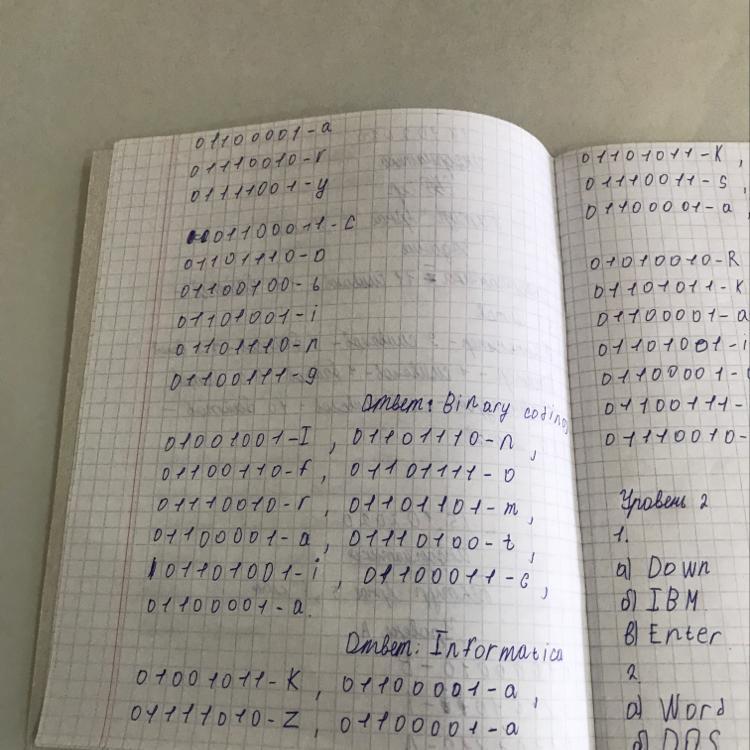 01100001-a
01110010-r
01111001-y
01100011-c
01101110-o
01100100-b
01101001-i
01101110-n
01100111-g
Ответ: Binary coding
01001001-I, 01101110-n,
01100110-f, 01101111-o
01110010-r, 01101101-m,
01100001-a, 01110100-t,
01101001-i, 01100011-c,
01100001-a.
Ответ: Informatica
01001011-K, 01100001-a,
01111010-Z, 01100001-a
01101011-K,
01110011-s,
01100001-a,
01010010-R
01101011-K
01100001-a
01101001-i
01100001-
01100111-
01110010-
Уровень 2
1.
а) Down
б) IBM
в) Enter
2
а) Word
б) DOS